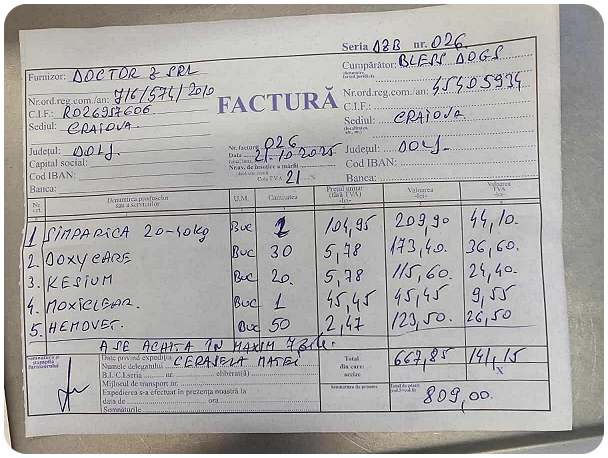 Seria DZB nr. 026.
Furnizor: DOCTOR Z SRL
Cumpărător: BLESS DOGS
Nr.ord.reg.com./an: J16/574/2010
C.I.F.: RO26957606
Sediul: CRAIOVA
Județul: DOLJ
Capital social:
Cod IBAN:
Banca:
FACTURĂ
Nr. factură 026
Data 21.10.2025
Nr. aviz. de însoțire a mărfii
Cota TVA 21 %
Nr.ord.reg.com./an:
C.I.F.: 45405934
Sediul: CRAIOVA
Județul: DOLJ
Cod IBAN:
Banca:
Nr. crt. Denumirea produselor sau a serviciilor U.M. Cantitatea Prețul unitar (fără TVA) -lei- Valoarea -lei- Valoarea TVA -lei-
1 SIMPARICA 20-40kg BUC 2 104,95 209,90 44,10.
2. DOXYCARE BUC 30 5,78 173,40 36,60.
3. KESIUM BUC 20. 5,78 115,60 24,40.
4. MOXICLEAR. BUC 1 45,45 45,45 9,55
5. HEMOVET. BUC 50 2,47 123,50 26,50
A SE ACHITA ÎN MAXIM 7 zile.
Semnătura și ștampila furnizorului
Date privind expediția
Numele delegatului CERASELA MATEI
B.I./C.I seria nr. eliberat(ă)
Mijlocul de transport nr.
Expedierea s-a efectuat în prezența noastră la
data de ora
Semnăturile
Total din care: accize 667,85 141,15
x
Semnătura de primire
Total de plată
809,00.